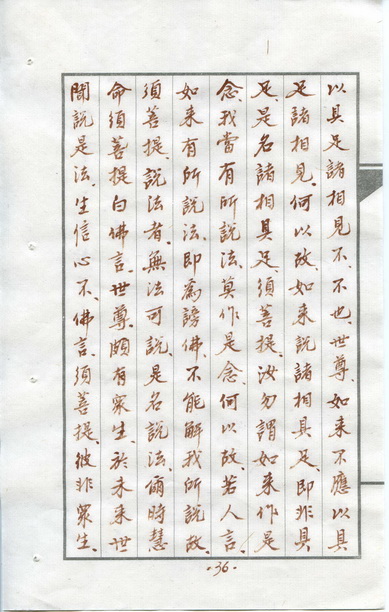 以具足諸相見不、不也、世尊、如来不應以具
足諸相見、何以故、如来説諸相具足、即非具
足、是名諸相具足、須菩提、汝勿謂如来作是
念、我當有所説法、莫作是念、何以故、若人言、
如来有所説法、即為謗佛、不能解我所説故、
須菩提、説法者、無法可説、是名説法、爾時慧
命須菩提白佛言、世尊、頗有衆生、於未来世、
聞説是法、生信心不、佛言、須菩提、彼非衆生、
·36·